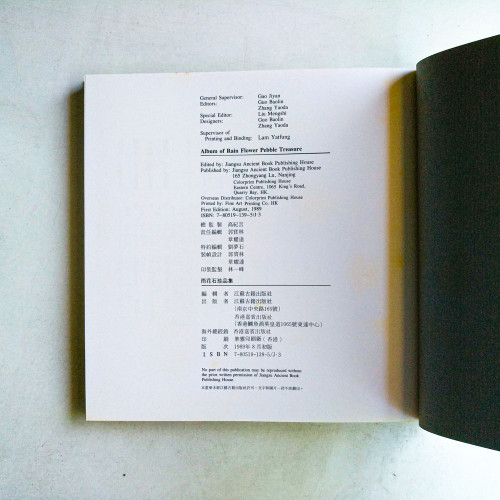 General Supervisor: Gao Jiyan
Editors: Guo Baolin
Zhang Yaoda
Special Editor: Liu Mengshi
Designers: Guo Baolin
Zhang Yaoda
Supervisor of
Printing and Binding: Lam Yatfung
Album of Rain Flower Pebble Treasure
Edited by: Jiangsu Ancient Book Publishing House
Published by: Jiangsu Ancient Book Publishing House
165 Zhongyang Lu, Nanjing
Colorprint Publishing House
Eastern Centre, 1065 King's Road,
Quarry Bay, HK
Overseas Distributor: Colorprint Publishing House
Printed by: Fine Art Printing Co. HK
First Edition: August, 1989
ISBN: 7-80519-139-5/J·5
總監製 高紀言
責任編輯 郭寶林
章耀達
特約編輯 劉夢石
裝幀設計 郭寶林
章耀達
印裝監製 林一峰
雨花石珍品集
編輯者 江蘇古籍出版社
出版者 江蘇古籍出版社
(南京中央路165號)
香港嘉賓出版社
(香港鰂魚涌英皇道1065號東達中心)
海外總經銷 香港嘉賓出版社
印刷 (香港)
版次 1989年8月初版
ISBN 7-80519-139-5/J·5
No part of this publication may be reproduced without
the prior written permission of Jiangsu Ancient Book
Publishing House.